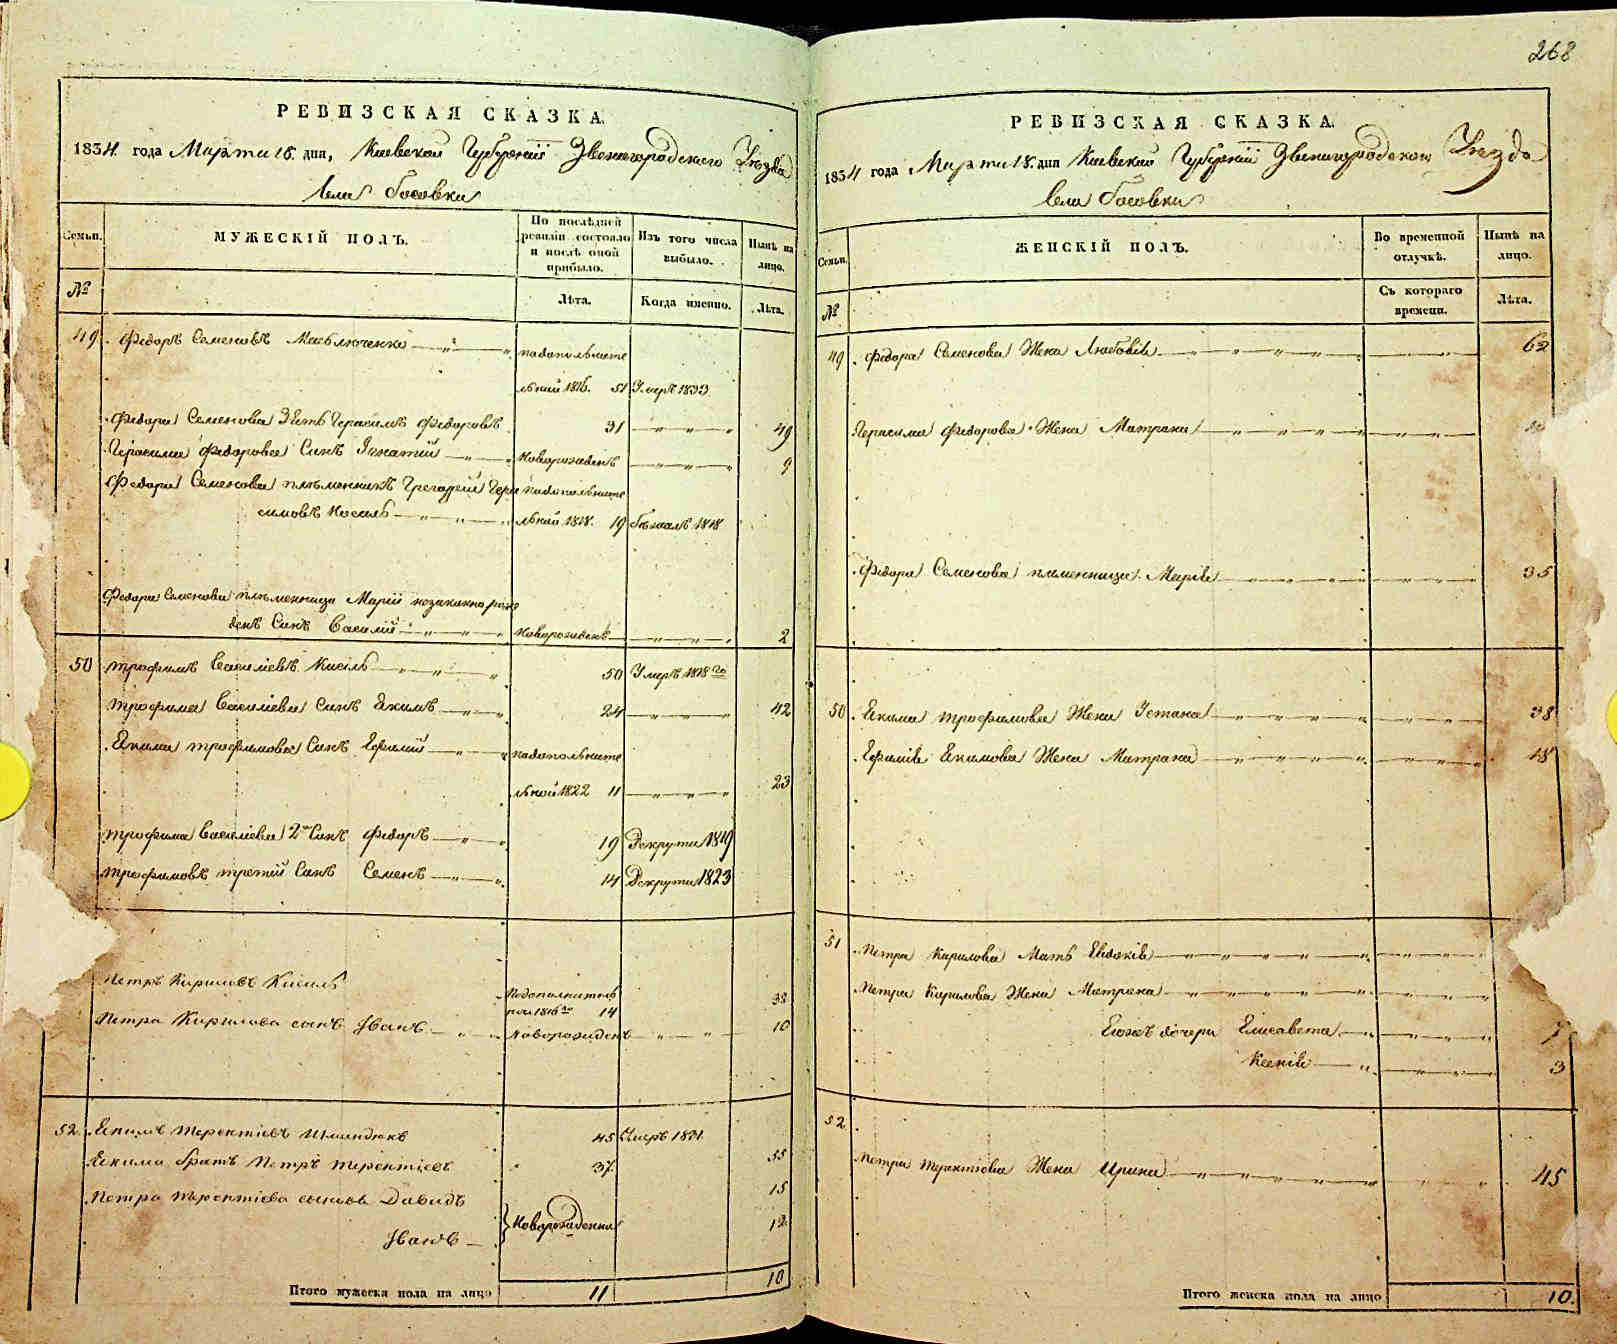 268
РЕВИЗСКАЯ СКАЗКА.
1834 года Марта 18 дня, Киевской Губернии Звенигородского Уезда
Села Босовки
Семьи.
МУЖЕСКІЙ ПОЛЪ.
По послѣдней ревизіи состояло и послѣ оной прибыло.
Изъ того числа выбыло.
Нынѣ на лицо.
№
Лѣта.
Когда именно.
Лѣта.
49 Федоръ Семеновъ
по дополните
льной 1816. 51 Умеръ 1833
Федора Семенова Зять Герасимъ Федоровъ 31 49
Герасима Федорова Синъ Игнатий Новорожденъ 9
Федора Семенова племенникъ Григорий Гера по дополните
симовъ льной 1818. 19 Бежалъ 1818
Федора Семенова племенници Марии незаконно рож
денъ Синъ Василий Новорожденъ 2
50 Трофимъ Василиевъ Кисіль 50 Умеръ 1818 го
Трофима Василиева Синъ Екимъ 24 42
Екима Трофимова Синъ Ефимий по дополните
льной 1822 11 23
Трофима Василиева 2й Синъ Федоръ 19 Рекрути 1819
Трофимовъ третий Синъ Семенъ 14 Рекрути 1823
Петръ Кириловъ Кисиль По дополнитель
ной 1816 го 14 32
Петра Кирилова сынъ Иванъ Новорожденъ 10
52 Екимъ Терентіевъ 45 Умеръ 1831
Екима братъ Петръ Терентіевъ 37. 55
Петра Терентіева сыновя Давидъ 15
Иванъ Новорожденни 12
Итого мужеска пола на лицо 11 10
РЕВИЗСКАЯ СКАЗКА.
1834 года Марта 18 дня Киевской Губернии Звенигородского Уезда
Села Босовки
Семьи.
ЖЕНСКІЙ ПОЛЪ.
Во временной отлучкѣ.
Нынѣ на лицо.
№
Съ котораго времени.
Лѣта.
49 Федора Семенова Жена Любовія 62
Герасима Федорова Жена Матрона
Федора Семенова племенница Марія 35
50 Екима Трофимова Жена Устина 38
Ефимія Екимова Жена Матрона 18
51 Петра Кирилова Мать Евдокія
Петра Кирилова Жена Матрона
Егожъ дочери Елисавета 7
Ксенія 3
52
Петра Терентіева Жена Ирина 45
Итого женска пола на лицо 10.